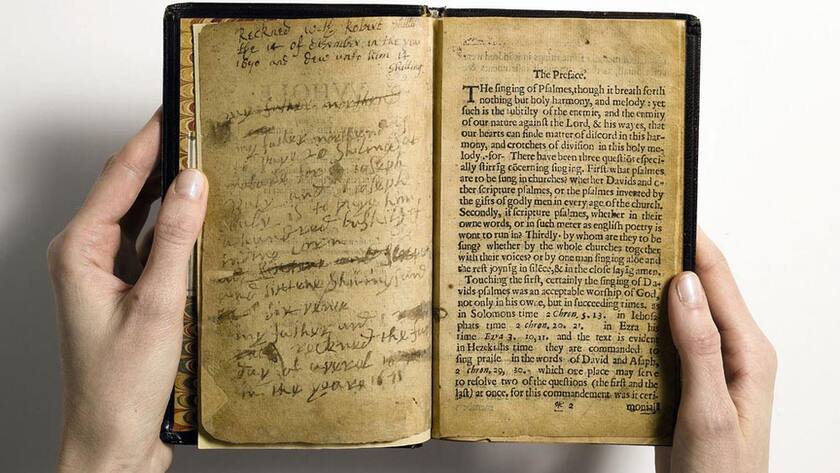 Reckned with Robert
the it of desember in the yea
1690 and dew unto him it
shilling
my father northend
my father northend
payd 20 shilings at
for joseph
joseph
to pay him
a hundred bushills
of
and sixtene shilings and
six pence
my father and
reckened the first
day of aperel in
in the yeare 1671
The Preface.
THe singing of Psalmes, though it breath forth
nothing but holy harmony, and melody: yet
such is the subtilty of the enemie, and the enmity
of our nature against the Lord, & his wayes, that
our hearts can finde matter of discord in this har-
mony, and crotchets of division in this holy me-
lody.-for- There have been three questiōs especi-
ally stirrīg cōcerning singing. First. what psalmes
are to be sung in churches? whether Davids and o-
ther scripture psalmes, or the psalmes invented by
the gifts of godly men in every age of the church.
Secondly, if scripture psalmes, whether in their
owne words, or in such meter as english poetry is
wont to run in? Thirdly. by whom are they to be
sung? whether by the whole churches together
with their voices? or by one man singing alōe and
the rest joynīg in silēce, & in the close sayīg amen.
Touching the first, certainly the singing of Da-
vids psalmes was an acceptable worship of God,
not only in his owne, but in succeeding times. as
in Solomons time 2 Chron. 5. 13. in Iehosa-
phats time 2 chron. 20. 21. in Ezra his
time Ezra 3. 10, 11. and the text is evident
in Hezekiahs time they are commanded to
sing praise in the words of David and Asaph,
2 chron. 29, 30. which one place may serve
to resolve two of the questions (the first and the
last) at once, for this commandement was it ceri-
* 2 moniall